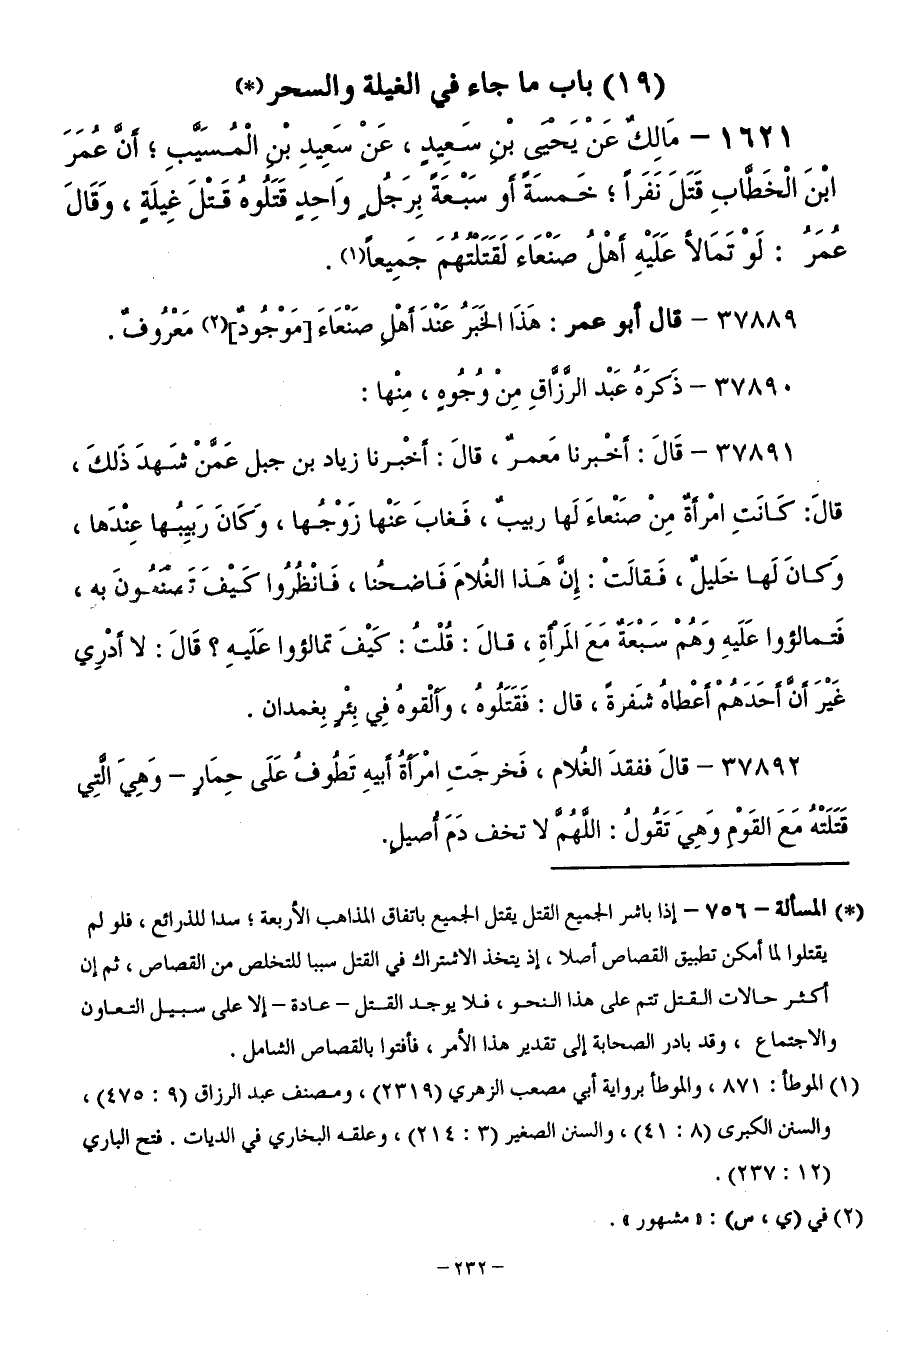 (١٩) باب ما جاء في الغيلة والسحر (*)
١٦٢١ – مَالِكٌ عَنْ يَحْيَى بْنِ سَعِيدٍ ، عَنْ سَعِيدِ بْنِ الْمُسَيَّبِ ؛ أَنَّ عُمَرَ
ابْنَ الْخَطَّابِ قَتَلَ نَفَراً ؛ خَمسَةً أو سَبْعَةً بِرَجُلٍ وَاحِدٍ قَتَلُوهُ قَتْلَ غِيلَةٍ ، وَقَالَ
عُمَرُ : لَوْ تَمَالأَ عَلَيْهِ أَهْلُ صَنْعَاءَ لَقَتَلْتُهُمَ جَمِيعاً(١) .
٣٧٨٨٩ – قال أبو عمر : هَذَا الخَبَرُ عِنْدَ أَهْلِ صَنْعَاءَ [مَوْجُودٌ](٢) مَعْرُوفٌ .
٣٧٨٩٠ – ذَكَرَهُ عَبْد الرَّزَّاقِ مِنْ وُجُوهٍ ، مِنْها :
٣٧٨٩١ – قَالَ : أَخْبرنا مَعمرٌ ، قالَ : أخْبرنا زياد بن جبل عَمَّنْ شَهدَ ذَلكَ ،
قالَ: كَانَتِ امْرأَةٌ مِنْ صَنْعَاءَ لَها ربيبٌ ، فَغابَ عَنْها زَوْجُها ، وَكَانَ رَبِيبُها عِنْدَها ،
وكَانَ لَها خَليلٌ ، فَقالَتْ : إِنَّ هَذا الغُلامَ فَاضحُنا ، فَانْظُرُوا كَيْفَ تَصْنَعُونَ به ،
فَتمالؤوا عَلَيهِ وَهُمْ سَبْعَةٌ مَعَ المَرأَةِ ، قالَ : قُلْتُ : كَيْفَ تمالؤوا عَلَيهِ ؟ قالَ : لا أدْرِي
غَيْرَ أنَّ أحَدَهُمْ أعْطاهُ شَفرةً ، قال : فَقَتَلُوهُ ، وألْقوهُ فِي بِئْرٍ بِغمدان .
٣٧٨٩٢ – قالَ ففقدَ الغُلام ، فَخرجَتِ امْرَأَةُ أبيهِ تَطُوفُ عَلَى حِمَارٍ – وَهِيَ الَّتِي
قَتَلَتْهُ مَعَ القَوْمِ وَهِيَ تَقُولُ : اللَّهُمَّ لا تخف دَمَ أُصيلٍ.
(*) المسألة – ٧٥٦ – إذا باشر الجميع القتل يقتل الجميع باتفاق المذاهب الأربعة ؛ سدا للذرائع ، فلو لم
يقتلوا لما أمكن تطبيق القصاص أصلا ، إذ يتخذ الاشتراك في القتل سببا للتخلص من القصاص ، ثم إن
أكثر حالات القتل تتم على هذا النحو ، فلا يوجد القتل – عادة – إلا على سبيل التعاون
والاجتماع ، وقد بادر الصحابة إلى تقدير هذا الأمر ، فأفتوا بالقصاص الشامل .
(١) الموطأ : ٨٧١ ، والموطأ برواية أبي مصعب الزهري (٢٣١٩) ، ومصنف عبد الرزاق (٩ : ٤٧٥) ،
والسنن الكبرى (٨ : ٤١) ، والسنن الصغير (٣ : ٢١٤) ، وعلقه البخاري في الديات . فتح الباري
(١٢ : ٢٣٧) .
(٢) في (ي ، س) : « مشهور » .
– ٢٣٢ –